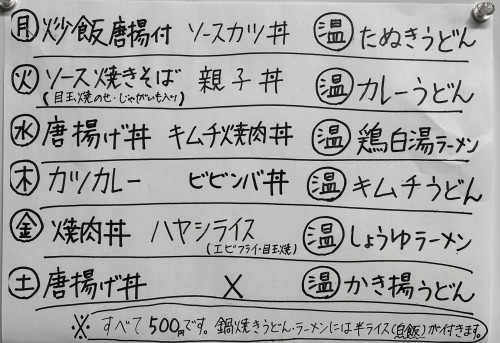 ㊊ 炒飯唐揚付 ソースカツ丼 温 たぬきうどん
㊋ ソース焼きそば 親子丼 温 カレーうどん
(目玉焼のせ・じゃがいも入り)
㊌ 唐揚げ丼 キムチ焼肉丼 温 鶏白湯ラーメン
㊍ カツカレー ビビンバ丼 温 キムチうどん
㊎ 焼肉丼 ハヤシライス 温 しょうゆラーメン
(エビフライ・目玉焼)
㊏ 唐揚げ丼 × 温 かき揚うどん
※ すべて500円です。鍋焼きうどん・ラーメンには半ライス(白飯)が付きます。